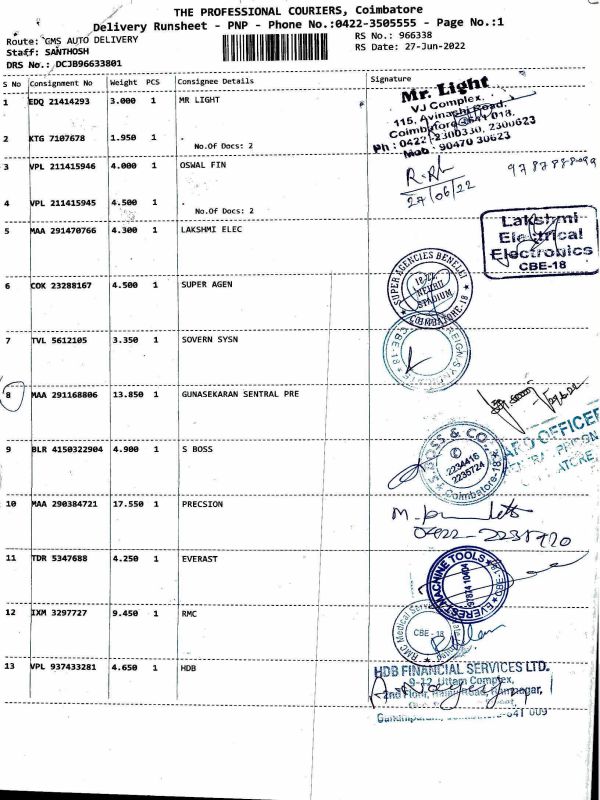 THE PROFESSIONAL COURIERS, Coimbatore
Delivery Runsheet - PNP - Phone No.:0422-3505555 - Page No.:1
Route: GMS AUTO DELIVERY
Staff: SANTHOSH
DRS No.: DCJB96633801
RS No.: 966338
RS Date: 27-Jun-2022
S No Consignment No Weight PCS Consignee Details Signature
1 EDQ 21414293 3.000 1 MR LIGHT
Mr. Light
VJ Complex,
115, Avinashi Road,
Coimbatore - 641 018.
Ph : 0422 - 2300330, 2300623
Mob : 90470 30623
2 KTG 7107678 1.950 1
No.Of Docs: 2
3 VPL 211415946 4.000 1 OSWAL FIN
27/06/22
4 VPL 211415945 4.500 1
No.Of Docs: 2
5 MAA 291470766 4.300 1 LAKSHMI ELEC
Lakshmi
Electrical
Electronics
CBE-18
6 COK 23288167 4.500 1 SUPER AGEN
SUPER AGENCIES
NEHRU
STADIUM
COIMBATORE-18
7 TVL 5612105 3.350 1 SOVERN SYSN
CBE-18
8 MAA 291168806 13.850 1 GUNASEKARAN SENTRAL PRE
9 BLR 4150322904 4.900 1 S BOSS
S.BOSS & CO.,
2234416
2235724
Coimbatore-18
10 MAA 290384721 17.550 1 PRECSION
11 TDR 5347688 4.250 1 EVERAST
EVEREST MACHINE TOOLS
97874 10404
CBE-18
12 IXM 3297727 9.450 1 RMC
RMC Medical
CBE - 18
13 VPL 937433281 4.650 1 HDB
HDB FINANCIAL SERVICES LTD.
9-12, Uttam Complex,
2nd Floor, Ramnagar,